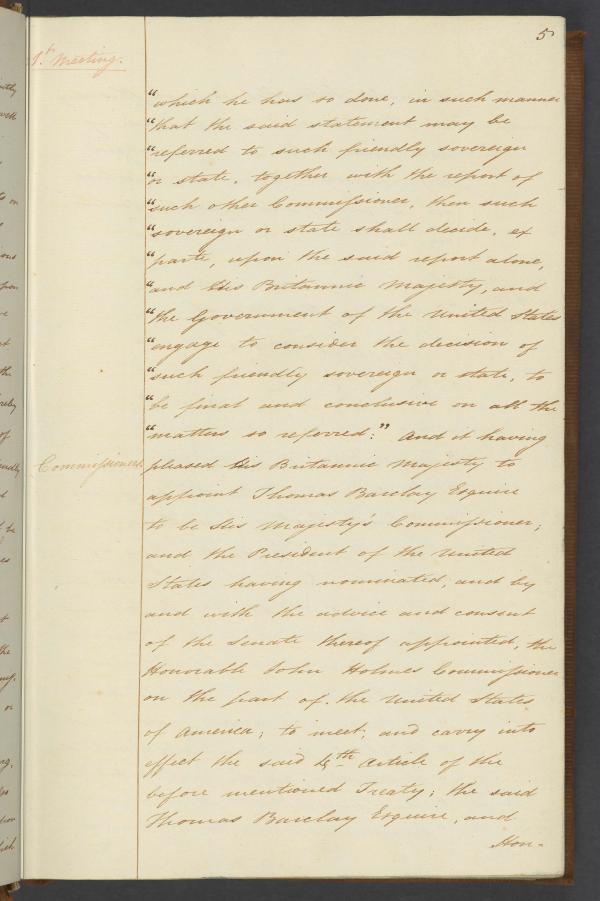 5
1st Meeting.
"which he has so done, in such manner
"that the said statement may be
"referred to such friendly sovereign
"or state, together with the report of
"such other Commissioner, then such
"sovereign or state shall decide, ex
"parte, upon the said report alone,
"and His Britannic Majesty, and
"the Government of the United States
"engage to consider the decision of
"such friendly sovereign or state, to
"be final and conclusive on all the
"matters so referred:" And it having
Commissioners,
pleased His Britannic Majesty to
appoint Thomas Barclay Esquire
to be His Majesty's Commissioner;
and the President of the United
States having nominated, and by
and with the advice and consent
of the Senate thereof appointed, the
Honorable John Holmes Commissioner
on the part of the United States
of America; to meet, and carry into
effect the said 4th Article of the
before mentioned Treaty; the said
Thomas Barclay Esquire, and
Hon-